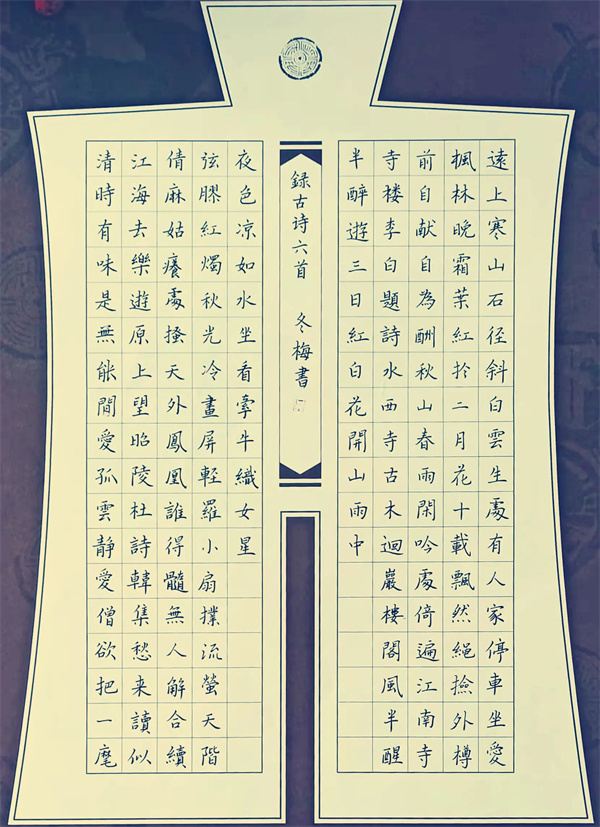 遠上寒山石径斜白雲生處有人家停車坐愛
楓林晚霜葉紅扵二月花十載飄然繩撿外樽
前自献自為酬秋山春雨閑吟處倚遍江南寺
寺楼李白題詩水西寺古木迴巖樓閣風半醒
半醉遊三日紅白花開山雨中
録古诗六首 冬梅書
清時有味是無能閒愛孤雲靜愛僧欲把一麾
江海去樂遊原上望昭陵杜詩韓集愁来讀似
倩麻姑癢處搔天外鳳凰誰得髓無人解合續
弦膠紅燭秋光冷畫屏輕羅小扇撲流螢天階
夜色凉如水坐看牽牛織女星